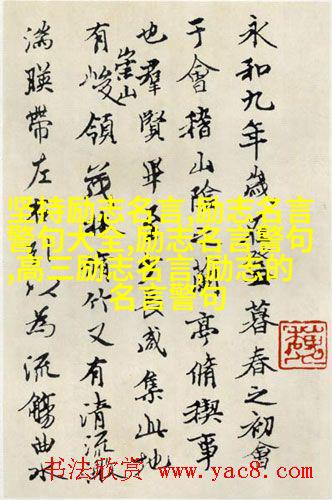 永和九年歲暮春之初會
于會稽山陰蘭亭脩禊事
也羣賢畢咸集此地
有崇山峻領茂林脩竹又有清流激
湍暎帶左右引以為流觴曲水
坚持励志名言,励志名言
警句大全,励志名言警句
,高三励志名言,励志的
名言警句
书法欣赏 www.yac8.com